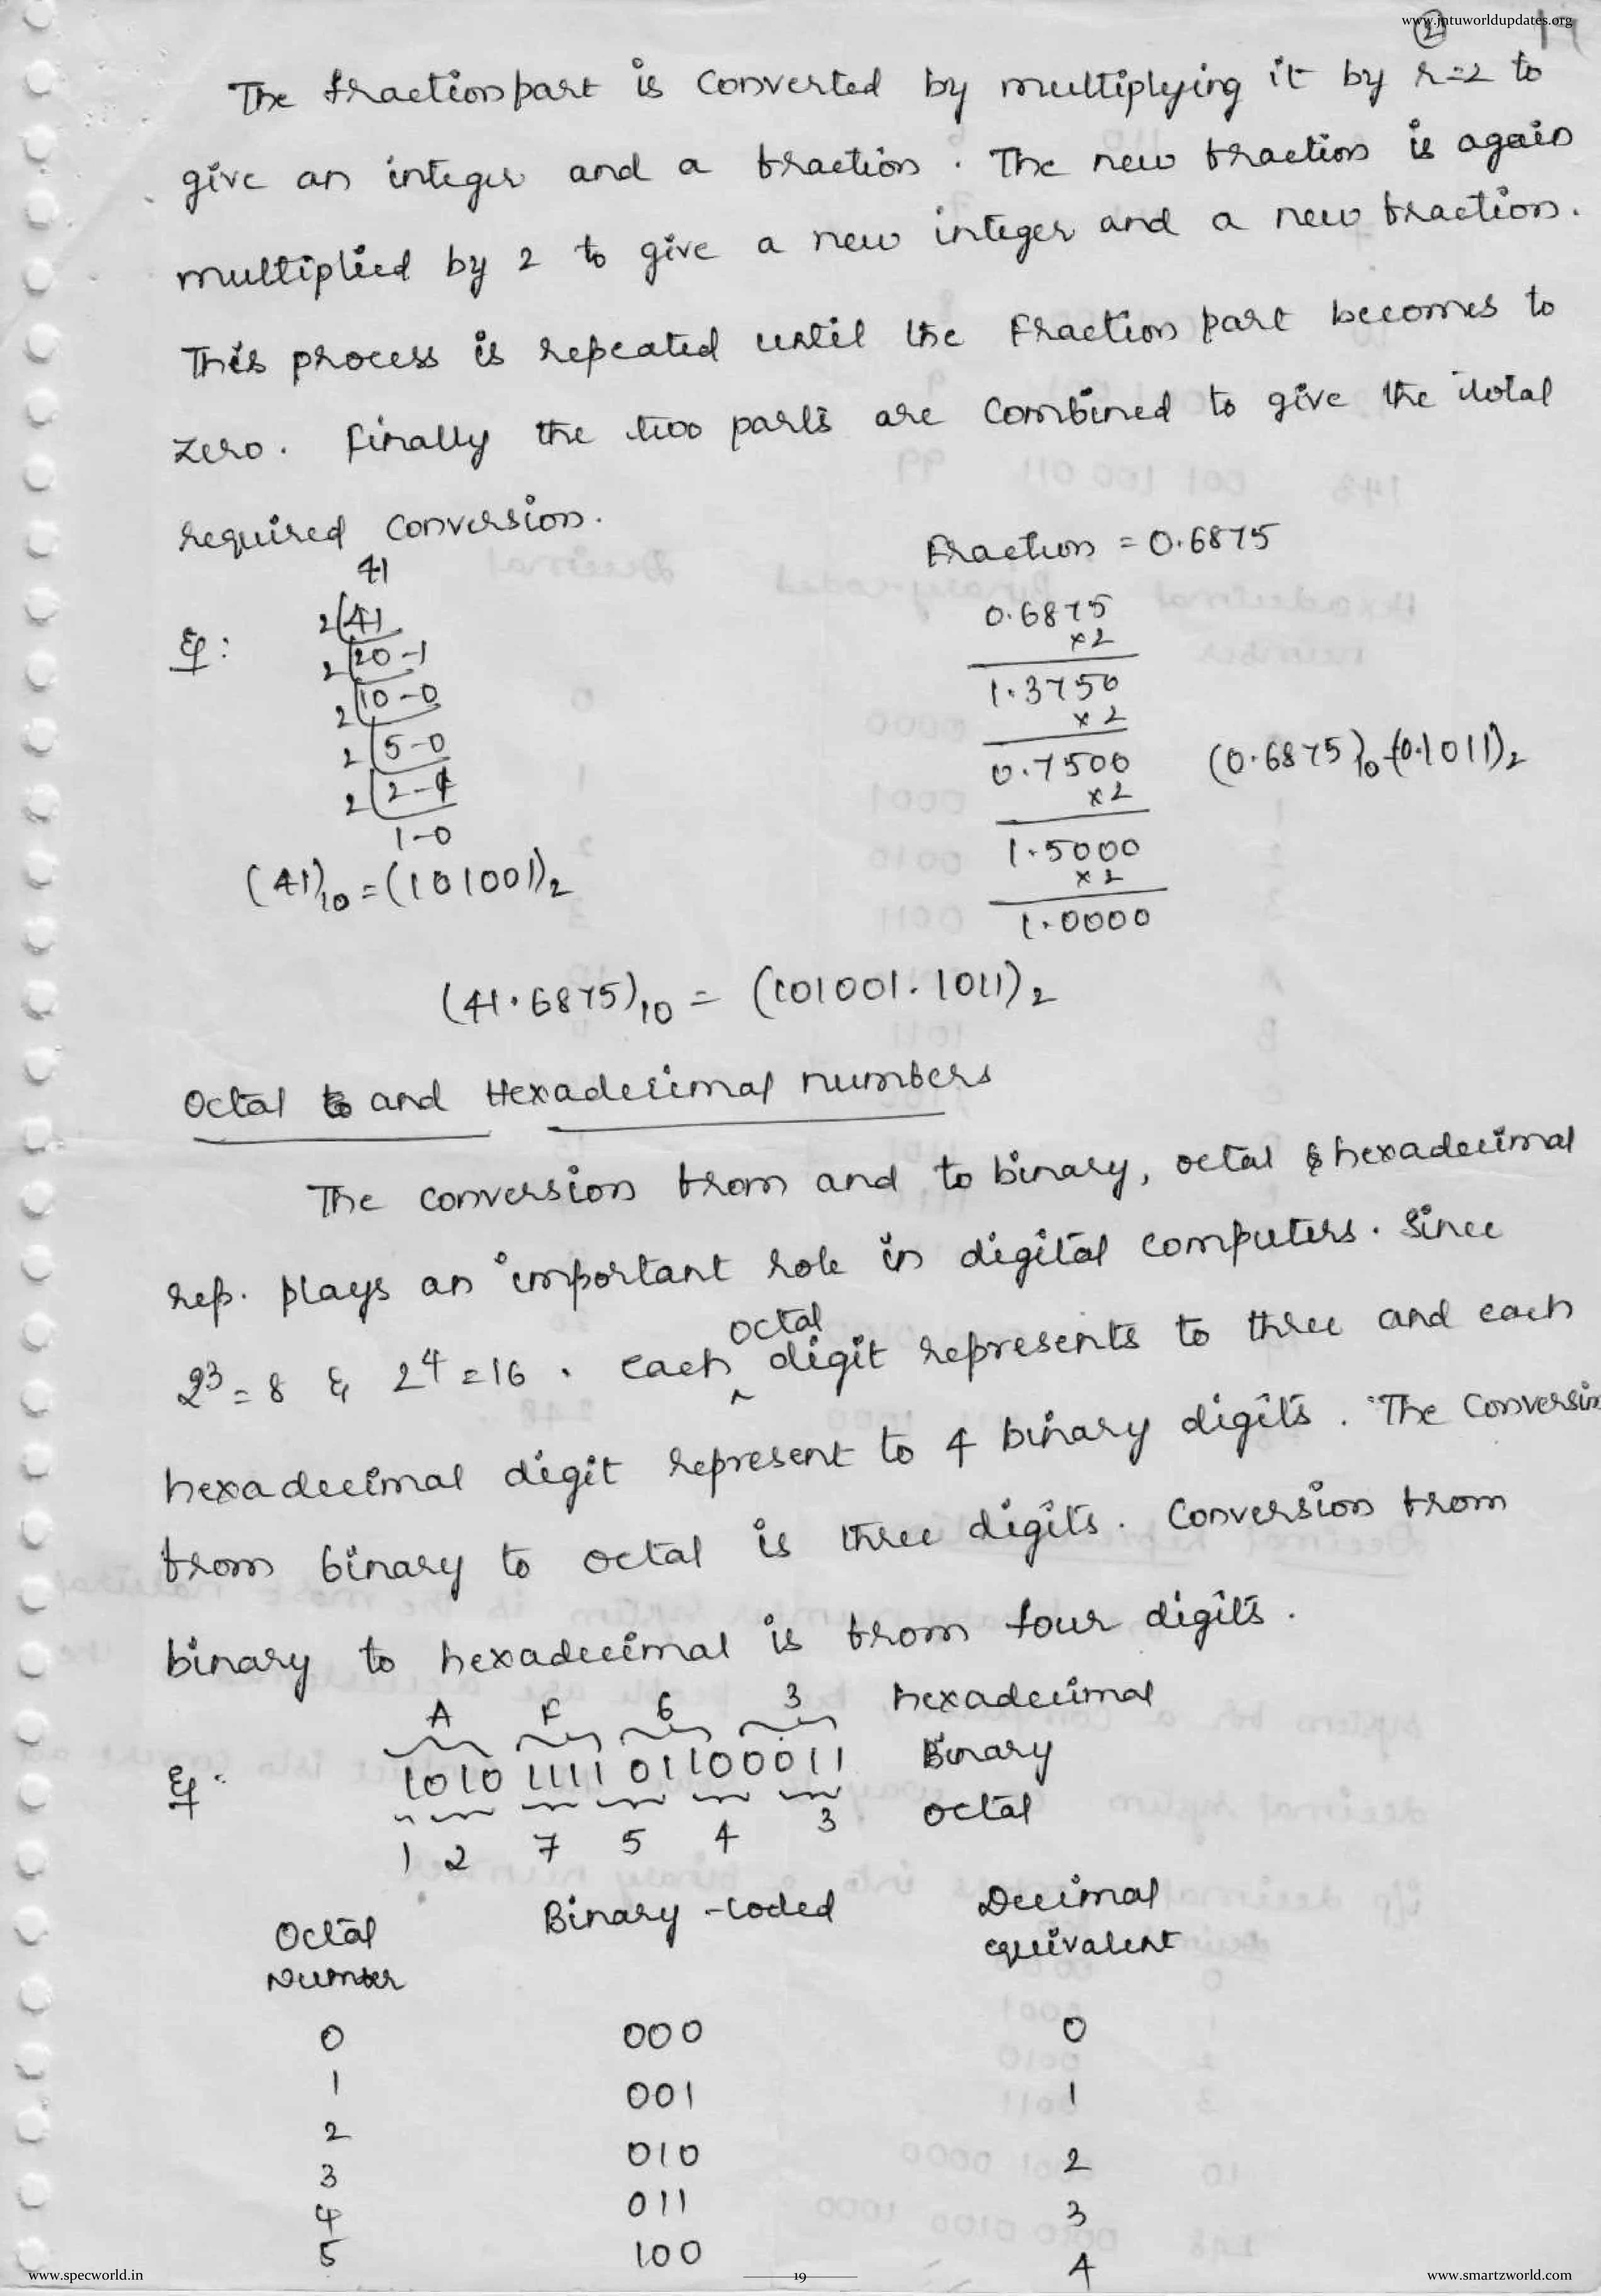 www.jntuworldupdates.org
2
The fraction part is converted by multiplying it by r=2 to
give an integer and a fraction. The new fraction is again
multiplied by 2 to give a new integer and a new fraction.
This process is repeated until the fraction part becomes to
zero. Finally the two parts are combined to give the total
required conversion.
41
Fraction = 0.6875
Eg:
2 41
2 20-1
2 10-0
2 5-0
2 2-1
1-0
(41)10 = (101001)2
0.6875
x2
1.3750
x2
0.7500
x2
1.5000
x2
1.0000
(0.6875)10=(0.1011)2
(41.6875)10 = (101001.1011)2
Octal and Hexadecimal numbers
The conversion from and to binary, octal & hexadecimal
rep. plays an important role in digital computers. Since
2^3=8 & 2^4=16. each octal digit represents to three and each
hexadecimal digit represent to 4 binary digits. The conversin
from binary to octal is three digits. Conversion from
binary to hexadecimal is from four digits.
A F 6 3 hexadecimal
Eg: 1010 1111 0110 0011 Binary
1 2 7 5 4 3 octal
Octal Number Binary-coded Decimal equivalent
0 000 0
1 001 1
2 010 2
3 011 3
4 100 4
5
www.specworld.in
19
www.smartzworld.com